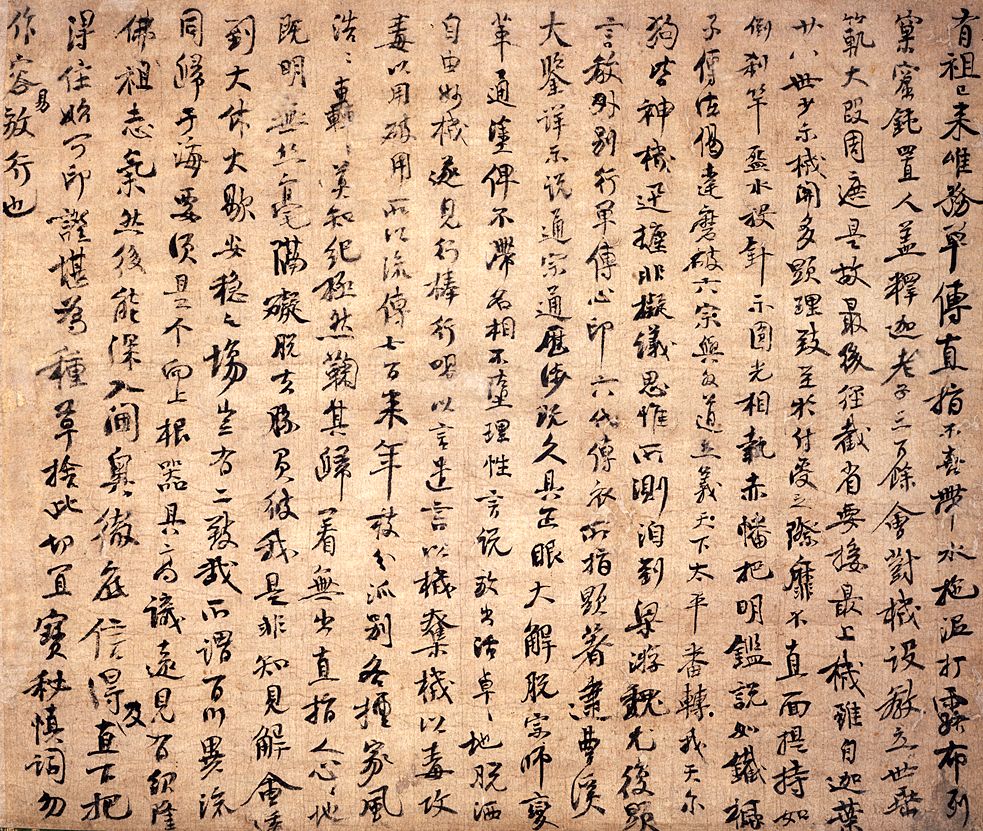 有祖已来唯務單傳直指不喜帶水拖泥打露布列
窠窟鈍置人蓋釋迦老子三百餘會對機設教立世垂
範大段周遮是故最後徑截省要接最上機雖自迦葉
廿八世少示機關多顯理致至於付受之際靡不直面提持如
倒刹竿盋水投針示圓光相執赤幡把明鑑說如鐵橛
子傳法偈達磨破六宗與外道立義天下太平番轉我天尔
狗皆神機迅捷非擬議思惟所測洎到梁游魏尤復顯
言教外別行單傳心印六代傳衣所指顯著逮曹溪
大鑒詳示說通宗通歷涉既久具正眼大解脫宗師變
革通塗俾不滯名相不墮理性言說放出活卓〻地脫洒
自由妙機遂見行棒行喝以言遣言以機奪機以毒攻
毒以用破用所以流傳七百来年枝分派別各擅家風
浩〻轟〻莫知紀極然鞠其歸着無出直指人心〻地
既明無絲毫隔礙脫去勝負彼我是非知見解會透
到大休大歇安穩之場豈有二致哉所謂百川異流
同歸于海要須是个向上根器具高識遠見有紹隆
佛祖志氣然後能深入閫奧徹底信得及直下把
得住始可印證堪為種草捨此切宜寶秘慎詞勿
作容易放行也